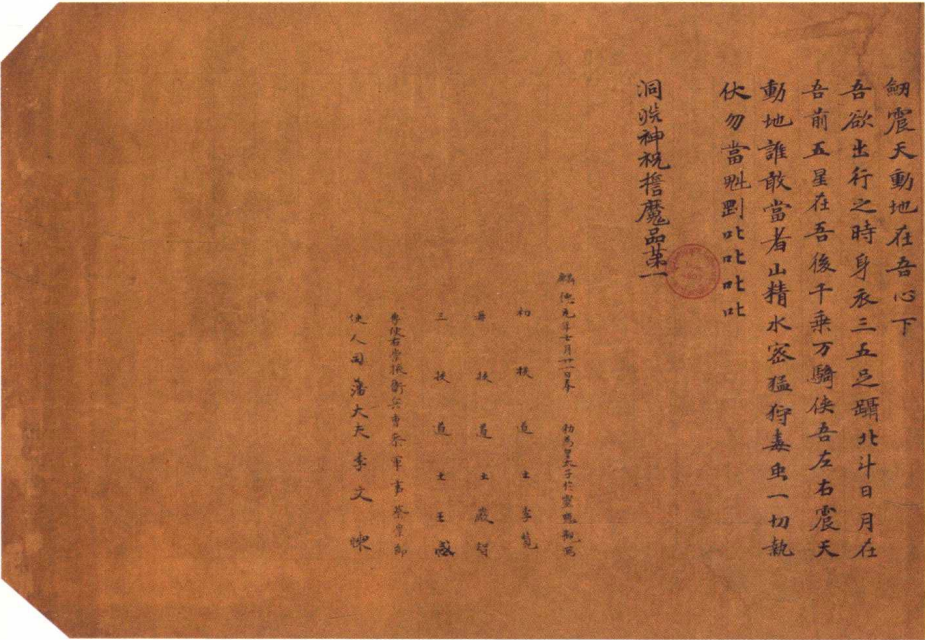 劒震天動地在吾心下
吾欲出行之時身衣三五足躡北斗日月在
吾前五星在吾後千乘万騎侠吾左右震天
動地誰敢當者山精水蜜猛狩毒虫一切執
伏勿當尅罰叱叱叱叱
洞渕神祝擔魔品苐一
麟德元年七月廿一日奉 勑為皇太子於靈應觀寫
初挍道士李覧
再挍道士嚴智
三挍道士王感
專使右崇掖衛兵曹叅軍事蔡崇節
使人司藩大夫李文暕